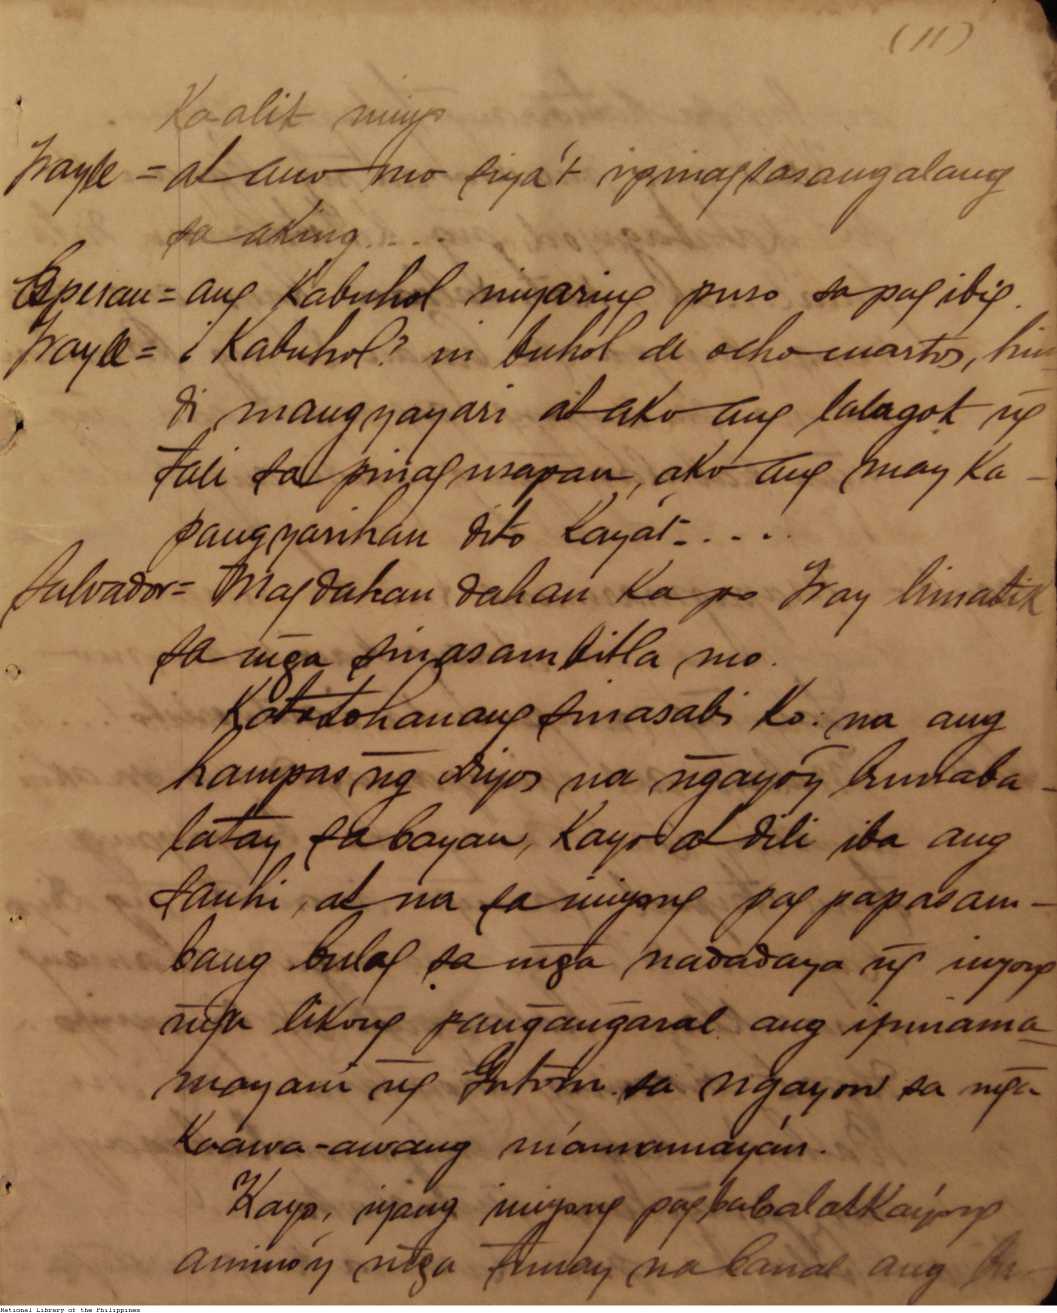 (11)
Kaalit ninyo
Frayle = at ano mo siya't ipinagsasangalang
sa aking....
Esperan = ang Kabuhol niyaring puso sa pag ibig.
Frayle = ¿Kabuhol? ni buhol de ocho cuartos, hin
di mangyayari at ako ang lalagot ñg
tali sa pinag usapan, ako ang may Ka-
pangyarihan dito Kayat-....
Salvador = Magdahan dahan Ka po Fray limatik
sa mg̃a sinasambitla mo.
Katotohanang sinasabi Ko: na ang
hampas ñg Diyos na ñgayo'y bumaba-
latay sa bayan, Kayo at dili iba ang
sanhi, at na sa inyong pag papasam-
bang bulag sa mg̃a nadadaya ñg inyong
mg̃a likong pang̃ang̃aral ang ipinama-
mayani ñg Gutom sa ngayon sa mg̃a
Kaawa-awang mámamayán.
Kayo, iyang inyong pagbabalatKayong
animo'y mg̃a tunay na banal ang
National Library of the Philippines